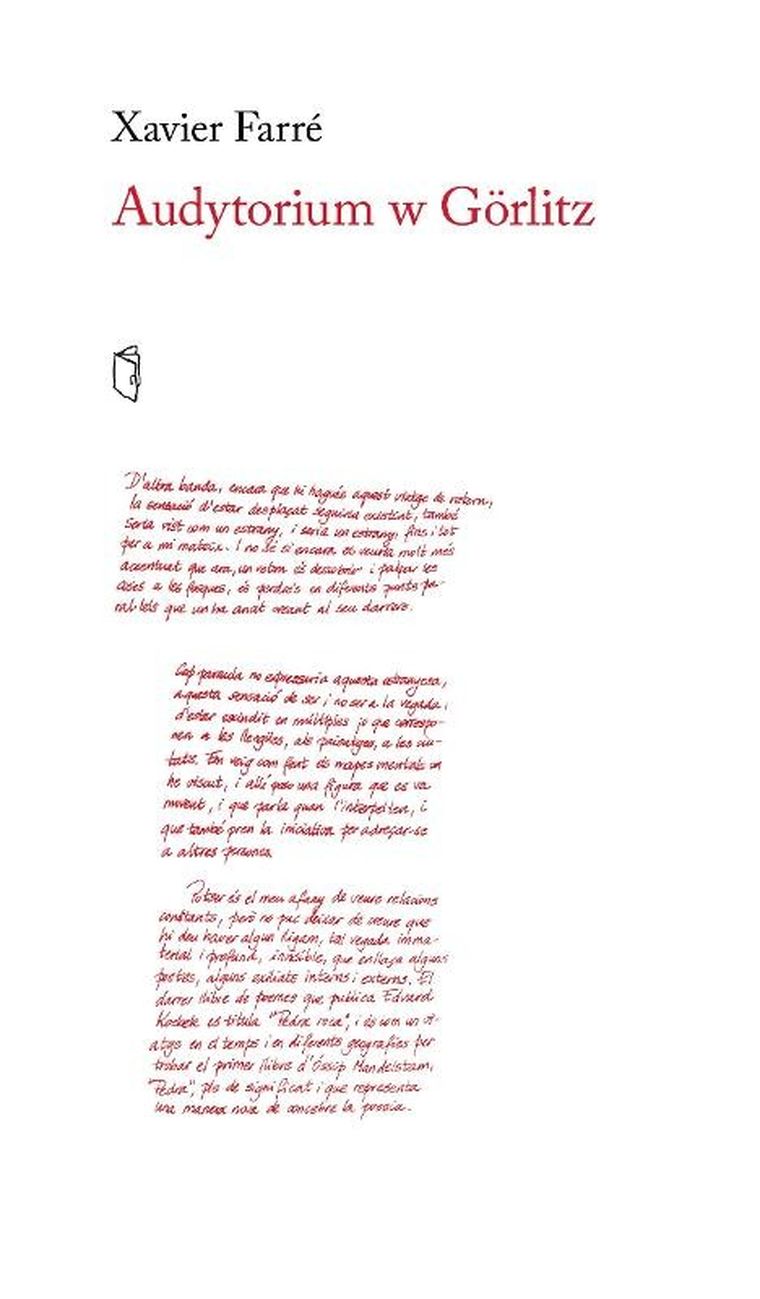 Xavier Farré
Audytorium w Görlitz
D'altra banda, encara que hi hagués aquest viatge de retorn,
la sensació d'estar desplaçat seguiria existint, també
seria vist com un estrany, i seria un estrany, fins i tot
per a mi mateix. I no sé si encara es veuria molt més
accentuat que ara, un retorn és descobrir i palpar les
coses a les fosques, és perdre's en diferents punts pa-
ral·lels que un ha anat creant al seu darrere.
Cap paraula no expressaria aquesta estranyesa,
aquesta sensació de ser i no ser a la vegada,
d'estar escindit en múltiples jo que correspo-
nen a les llengües, als paisatges, a les ciu-
tats. Em veig com fent els mapes mentals on
he viscut, i allí poso una figura que es va
movent, i que parla quan l'interpel·len, i
que també pren la iniciativa per adreçar-se
a altres persones.
Potser és el meu afany de veure relacions
constants, però no puc deixar de creure que
hi deu haver algun lligam, tal vegada imma-
terial i profund, invisible, que enllaça alguns
poetes, alguns exiliats interns i externs. El
darrer llibre de poemes que publica Edvard
Kocbek es titula "Pedra roca", i és com un vi-
atge en el temps i en diferents geografies per
trobar el primer llibre d'Óssip Mandelstam,
"Pedra", ple de significat i que representa
una manera nova de concebre la poesia.